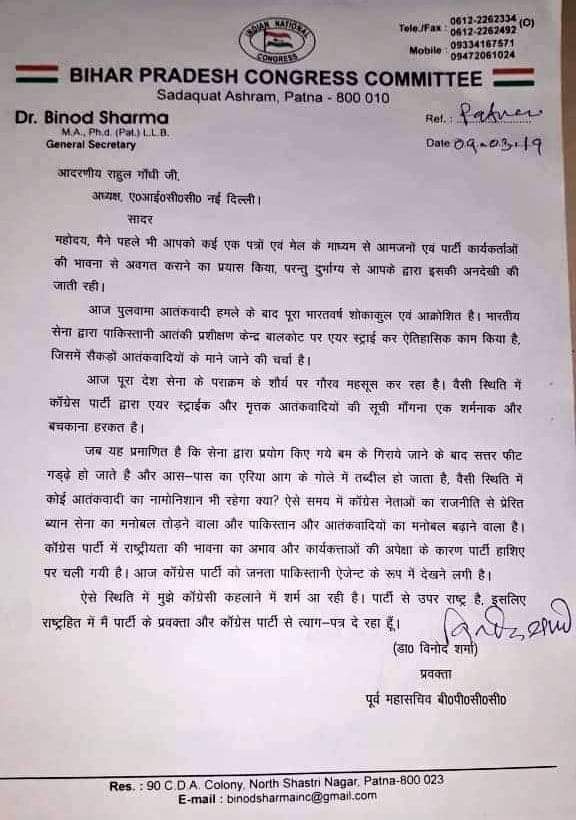 INDIAN NATIONAL
CONGRESS
Tele./Fax : 0612-2262334 (O)
0612-2262492
Mobile : 09334167571
09472061024
BIHAR PRADESH CONGRESS COMMITTEE
Sadaquat Ashram, Patna - 800 010
Dr. Binod Sharma
M.A., Ph.d (Pat.) L.L.B.
General Secretary
Ref. : Patna
Date 09-03-19
आदरणीय राहुल गाँधी जी,
अध्यक्ष, ए०आई०सी०सी० नई दिल्ली।
सादर
महोदय, मैने पहले भी आपको कई एक पत्रों एवं मेल के माध्यम से आमजनों एवं पार्टी कार्यकर्ताओं
की भावना से अवगत कराने का प्रयास किया, परन्तु दुर्भाग्य से आपके द्वारा इसकी अनदेखी की
जाती रही।
आज पुलवामा आतंकवादी हमले के बाद पूरा भारतवर्ष शोकाकुल एवं आक्रोशित है। भारतीय
सेना द्वारा पाकिस्तानी आतंकी प्रशीक्षण केन्द्र बालकोट पर एयर स्ट्राई कर ऐतिहासिक काम किया है,
जिसमें सैकड़ों आतंकवादियों के माने जाने की चर्चा है।
आज पूरा देश सेना के पराक्रम के शौर्य पर गौरव महसूस कर रहा है। वैसी स्थिति में
कॉग्रेस पार्टी द्वारा एयर स्ट्राईक और मृत्तक आतंकवादियों की सूची माँगना एक शर्मनाक और
बचकाना हरकत है।
जब यह प्रमाणित है कि सेना द्वारा प्रयोग किए गये बम के गिराये जाने के बाद सत्तर फीट
गड्ढ़े हो जाते है और आस-पास का एरिया आग के गोले में तब्दील हो जाता है, वैसी स्थिति में
कोई आतंकवादी का नामोनिशान भी रहेगा क्या? ऐसे समय में कॉग्रेस नेताओं का राजनीति से प्रेरित
ब्यान सेना का मनोबल तोड़ने वाला और पाकिस्तान और आतंकवादियों का मनोबल बढ़ाने वाला है।
कॉग्रेस पार्टी में राष्ट्रीयता की भावना का अभाव और कार्यकर्त्ताओं की अपेक्षा के कारण पार्टी हाशिए
पर चली गयी है। आज कॉग्रेस पार्टी को जनता पाकिस्तानी ऐजेन्ट के रूप में देखने लगी है।
ऐसे स्थिति में मुझे कॉग्रेसी कहलाने में शर्म आ रही है। पार्टी से उपर राष्ट्र है, इसलिए
राष्ट्रहित में मैं पार्टी के प्रवक्ता और कॉग्रेस पार्टी से त्याग-पत्र दे रहा हूँ।
(डा० विनोद शर्मा)
प्रवक्ता
पूर्व महासचिव बी०पी०सी०सी०
Res. : 90 C.D.A. Colony, North Shastri Nagar, Patna-800 023
E-mail : binodsharmainc@gmail.com